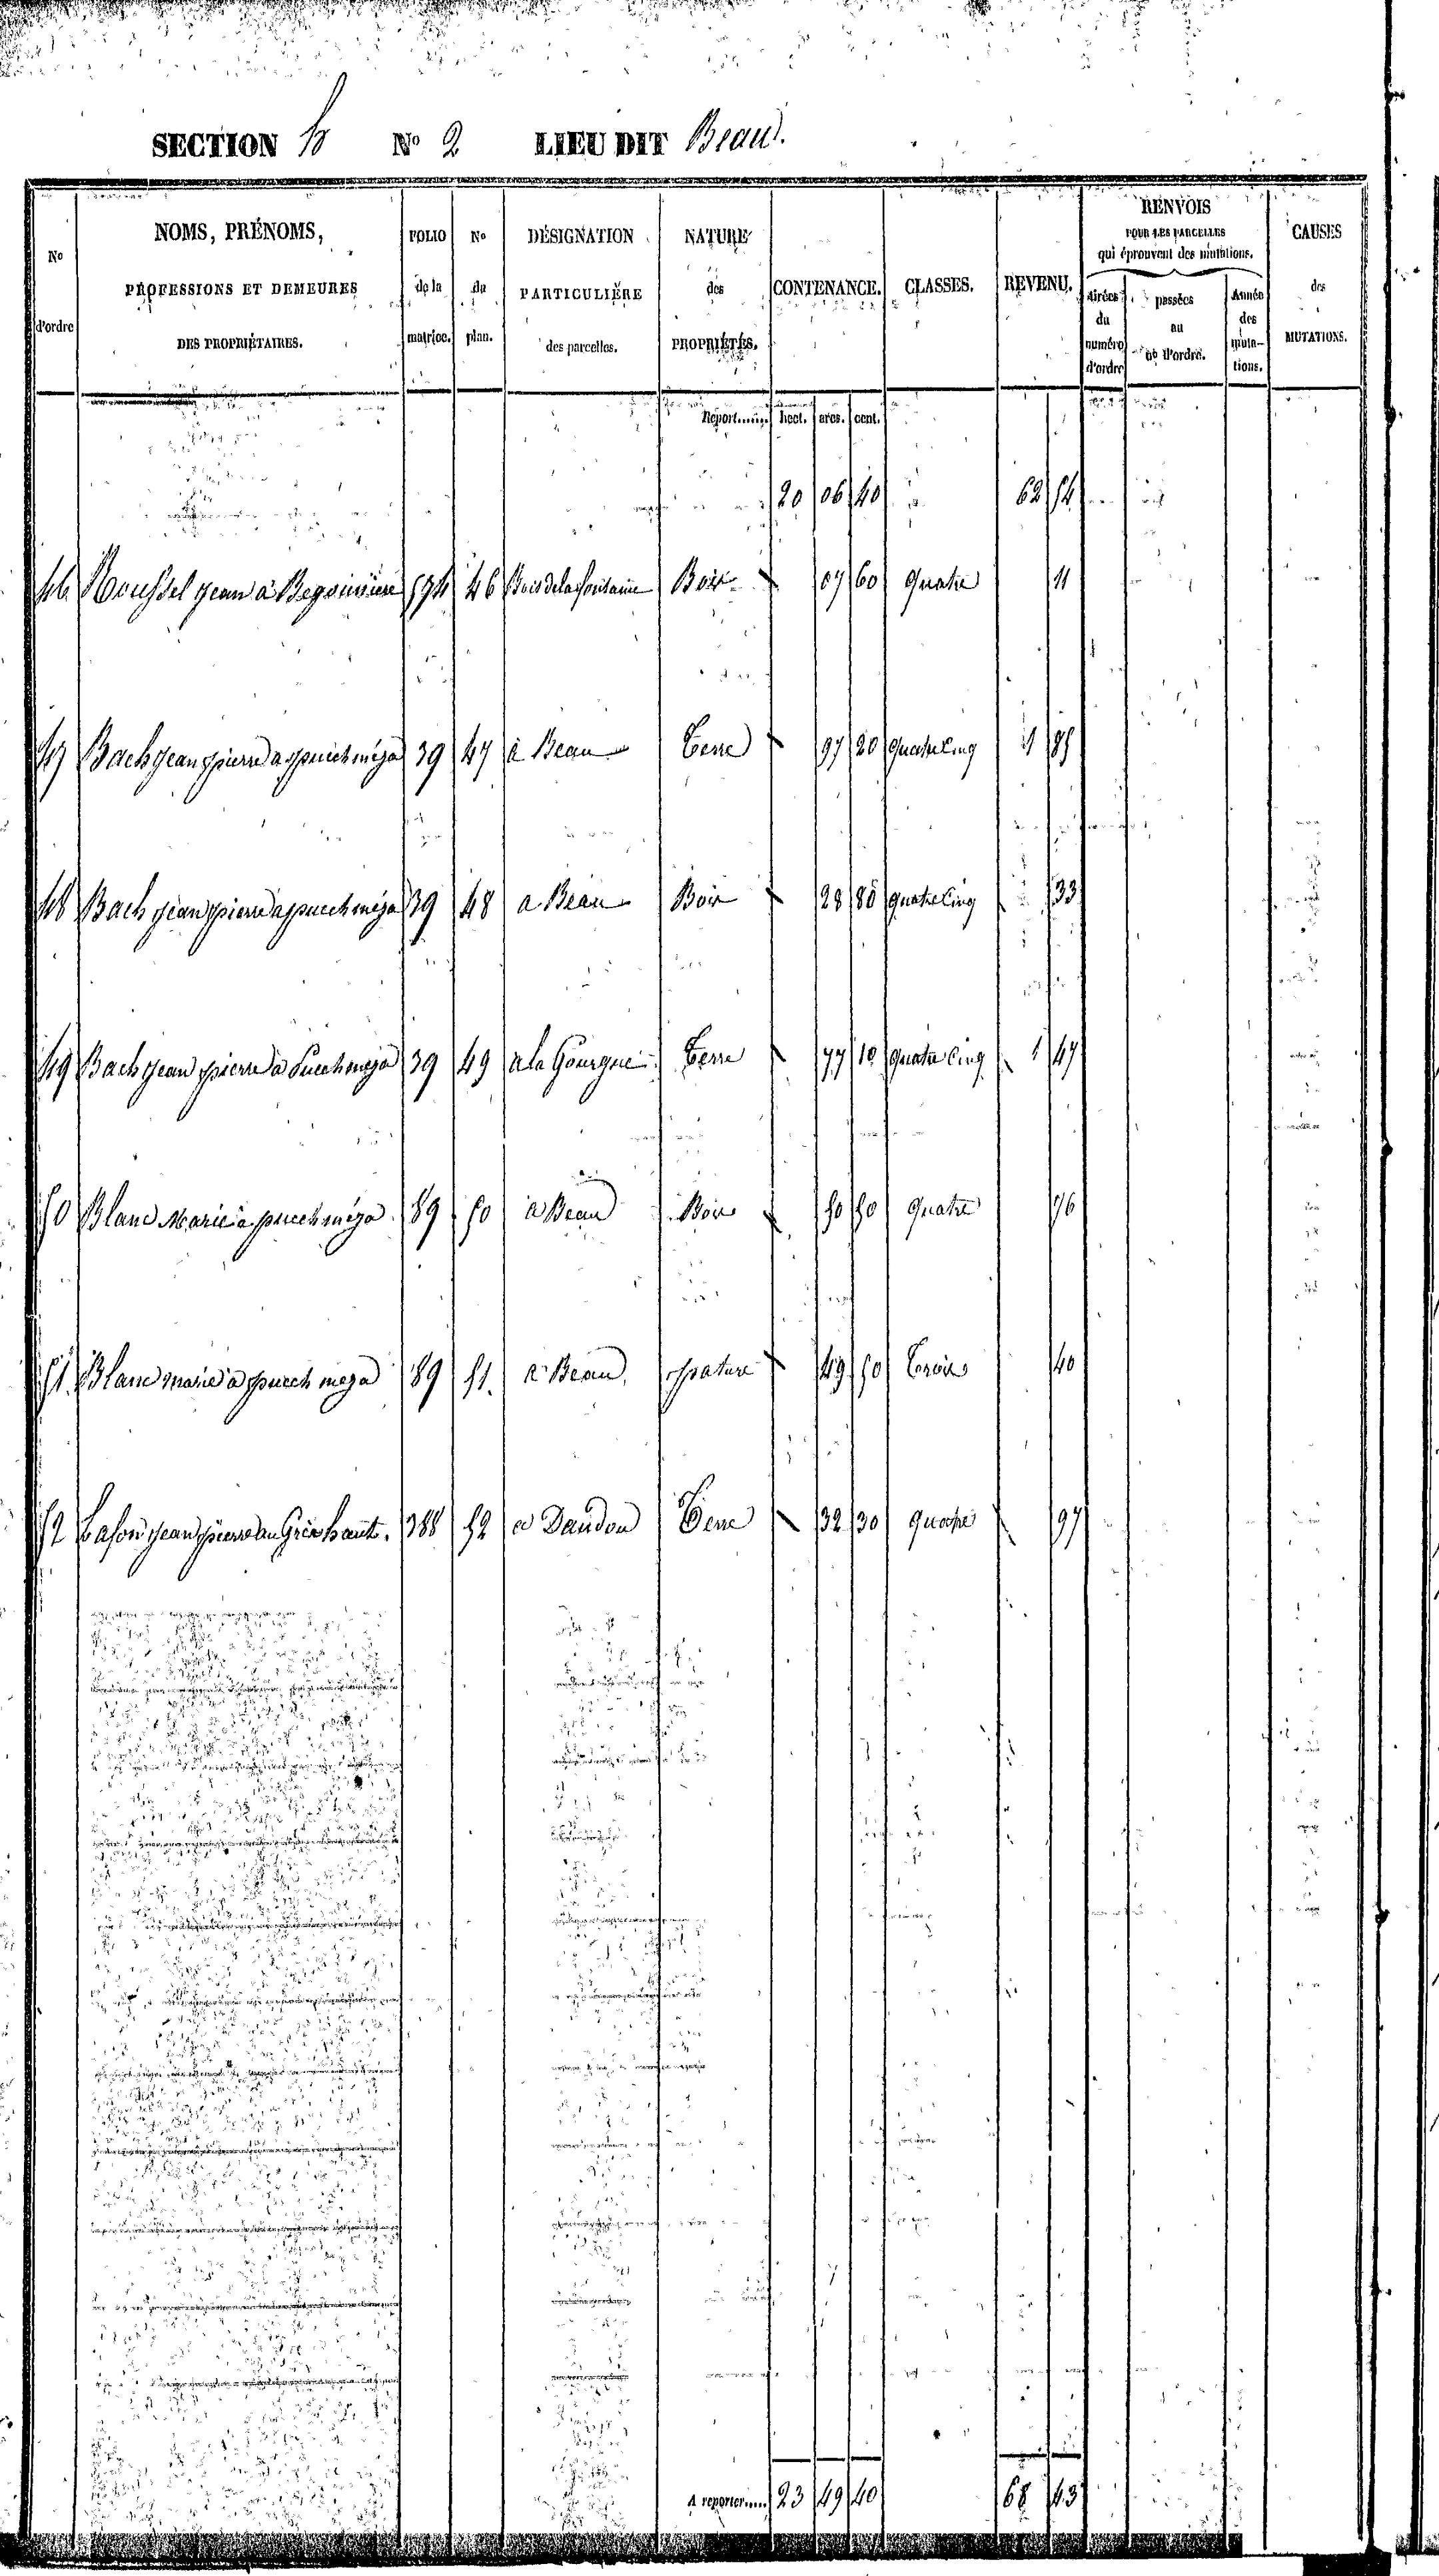 SECTION B No 2 LIEU DIT Beau.
No d'ordre
NOMS, PRÉNOMS,
PROFESSIONS ET DEMEURES
DES PROPRIÉTAIRES.
FOLIO de la matrice.
No du plan.
DÉSIGNATION
PARTICULIÈRE
des parcelles.
NATURE
des
PROPRIÉTÉS.
CONTENANCE.
CLASSES.
REVENU.
RENVOIS
POUR LES PARCELLES
qui éprouvent des mutations.
tirées du numéro d'ordre
passées au no d'ordre.
Année des muta-tions.
CAUSES
des
MUTATIONS.
Report...... hect. ares. cent.
20 06 40 62 54
46 Roussel jean à 594 46 Bois de la fontaine Bois 07 60 quatre 11
47 Bach jean pierre a puech méja 39 47 à Beau Terre 97 20 quatre cinq 1 85
48 Bach jean pierre a puech méja 39 48 a Beau Bois 28 80 quatre cinq 33
49 Bach jean pierre à Puech méja 39 49 a la Gourgue Terre 77 10 quatre cinq 1 47
50 Blanc Marie à puech méja 89 50 à Beau Bois 50 50 quatre 76
51 Blanc marie à puech méja 89 51. à Beau, pature 49 50 Trois 40
52 Lafon jean pierre au haut. 388 52 a Daudou Terre 32 30 quatre 97
A reporter..... 23 49 40 68 43